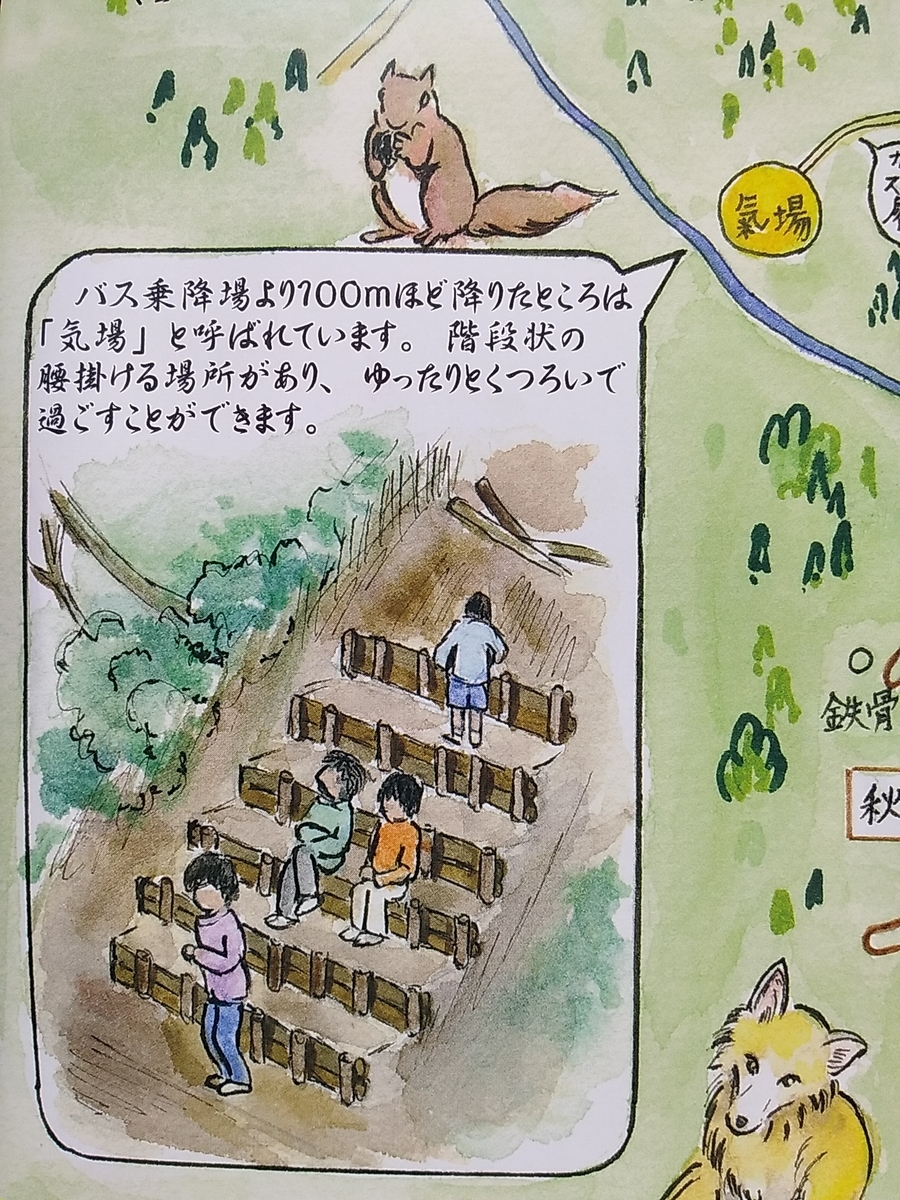 バス乗降場より100mほど降りたところは
「気場」と呼ばれています。 階段状の
腰掛ける場所があり、 ゆったりとくつろいで
過ごすことができます。
氣場
鉄骨
秋